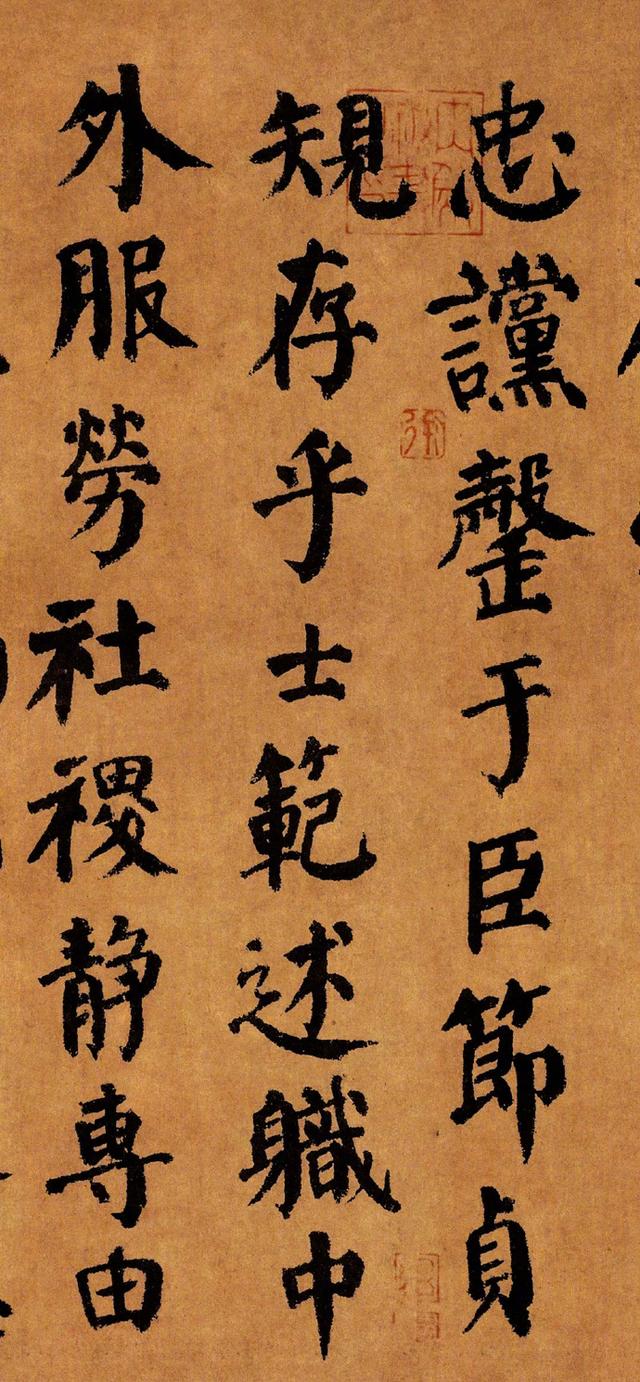 忠讜罄于臣節貞
䂓存乎士範述軄中
外服勞社禝静專由